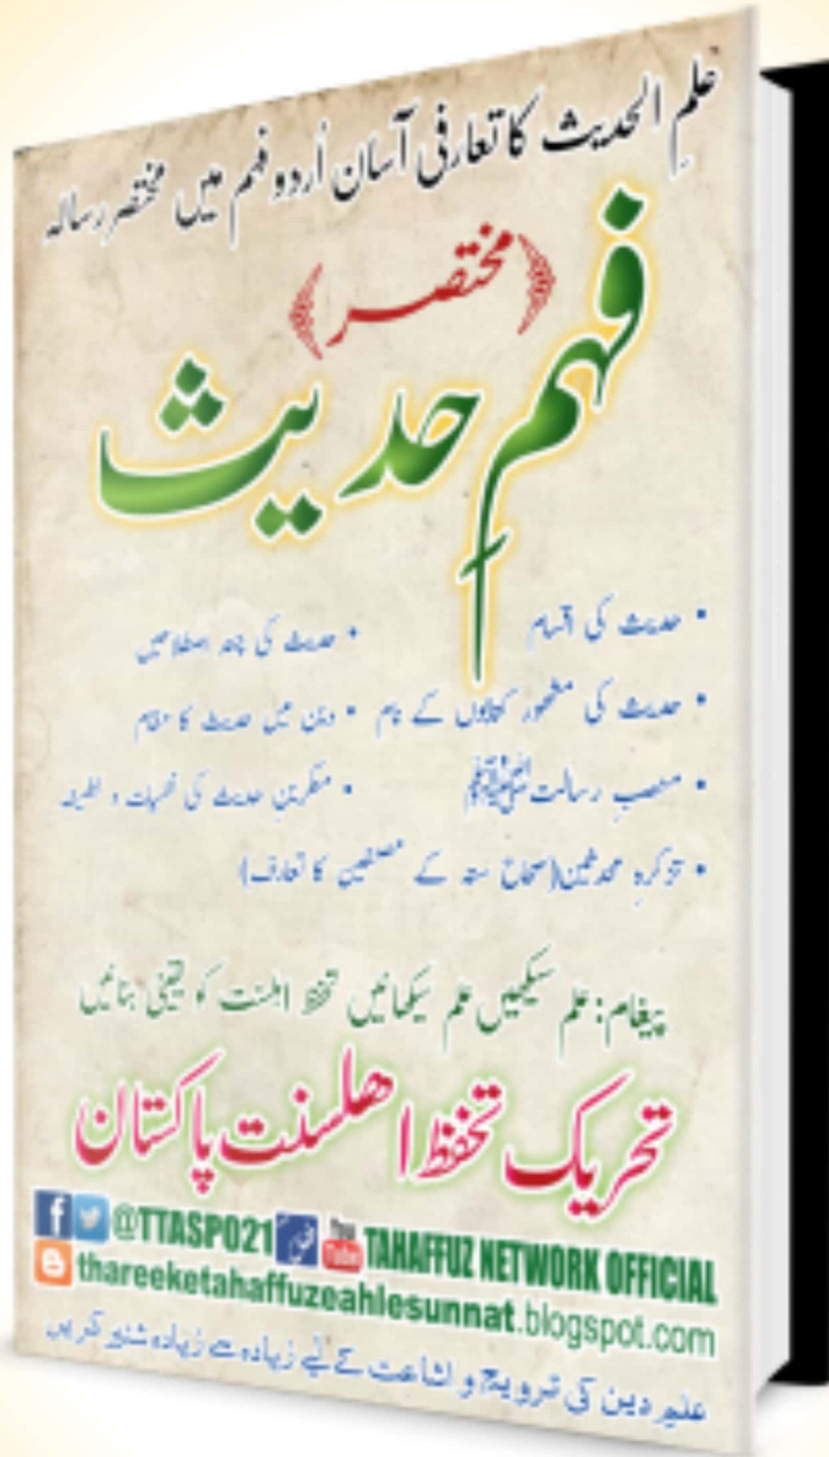 علمِ الحدیث کا تعارفی آسان اُردو فہم میں مختصر رسالہ
(مختصر)
فہم حدیث
• حدیث کی اقسام • حدیث کی چند اصطلاحیں
• حدیث کی مشہور کتابوں کے نام • دین میں حدیث کا مقام
• منصبِ رسالت ﷺ • منکرینِ حدیث کی شبہات و لطیفہ
• تذکرہِ محدثین (صحاح ستہ کے مصنفین کا تعارف)
پیغام: علم سیکھیں علم سیکھائیں تحفظ اہلسنت کو یقینی بنائیں
تحریک تحفظ اھلسنت پاکستان
@TTASP021 You Tube TAHAFFUZ NETWORK OFFICIAL
thareeketahaffuzeahlesunnat.blogspot.com
علمِ دین کی ترویج و اشاعت کے لیے زیادہ سے زیادہ شئیر کریں